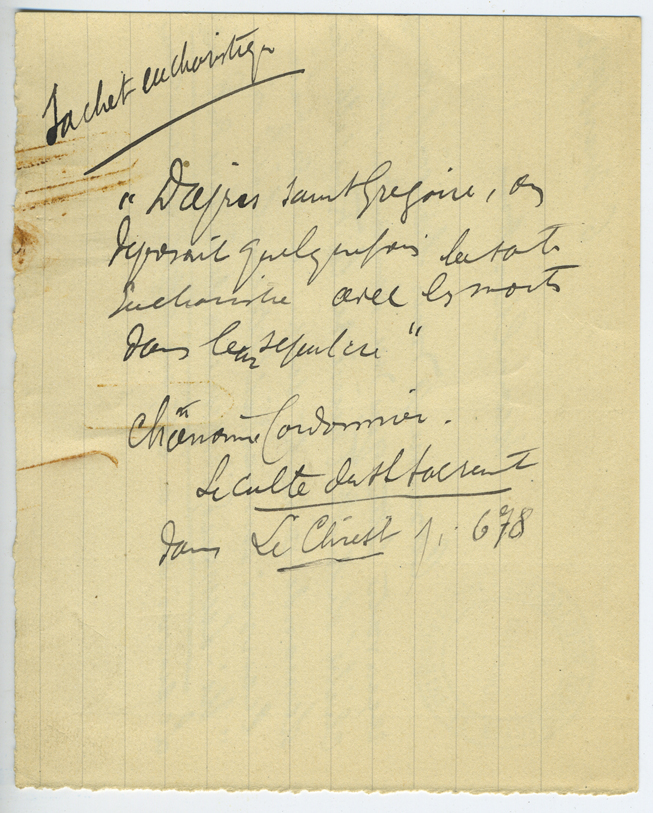 Sachet eucharistique
" D'après saint Grégoire, on
déposait quelquefois la sainte
Eucharistie avec les morts
dans leur sépulcre "
Chanoine Cordonnier.
Le culte du St Sacrement
dans Le Christ p. 678